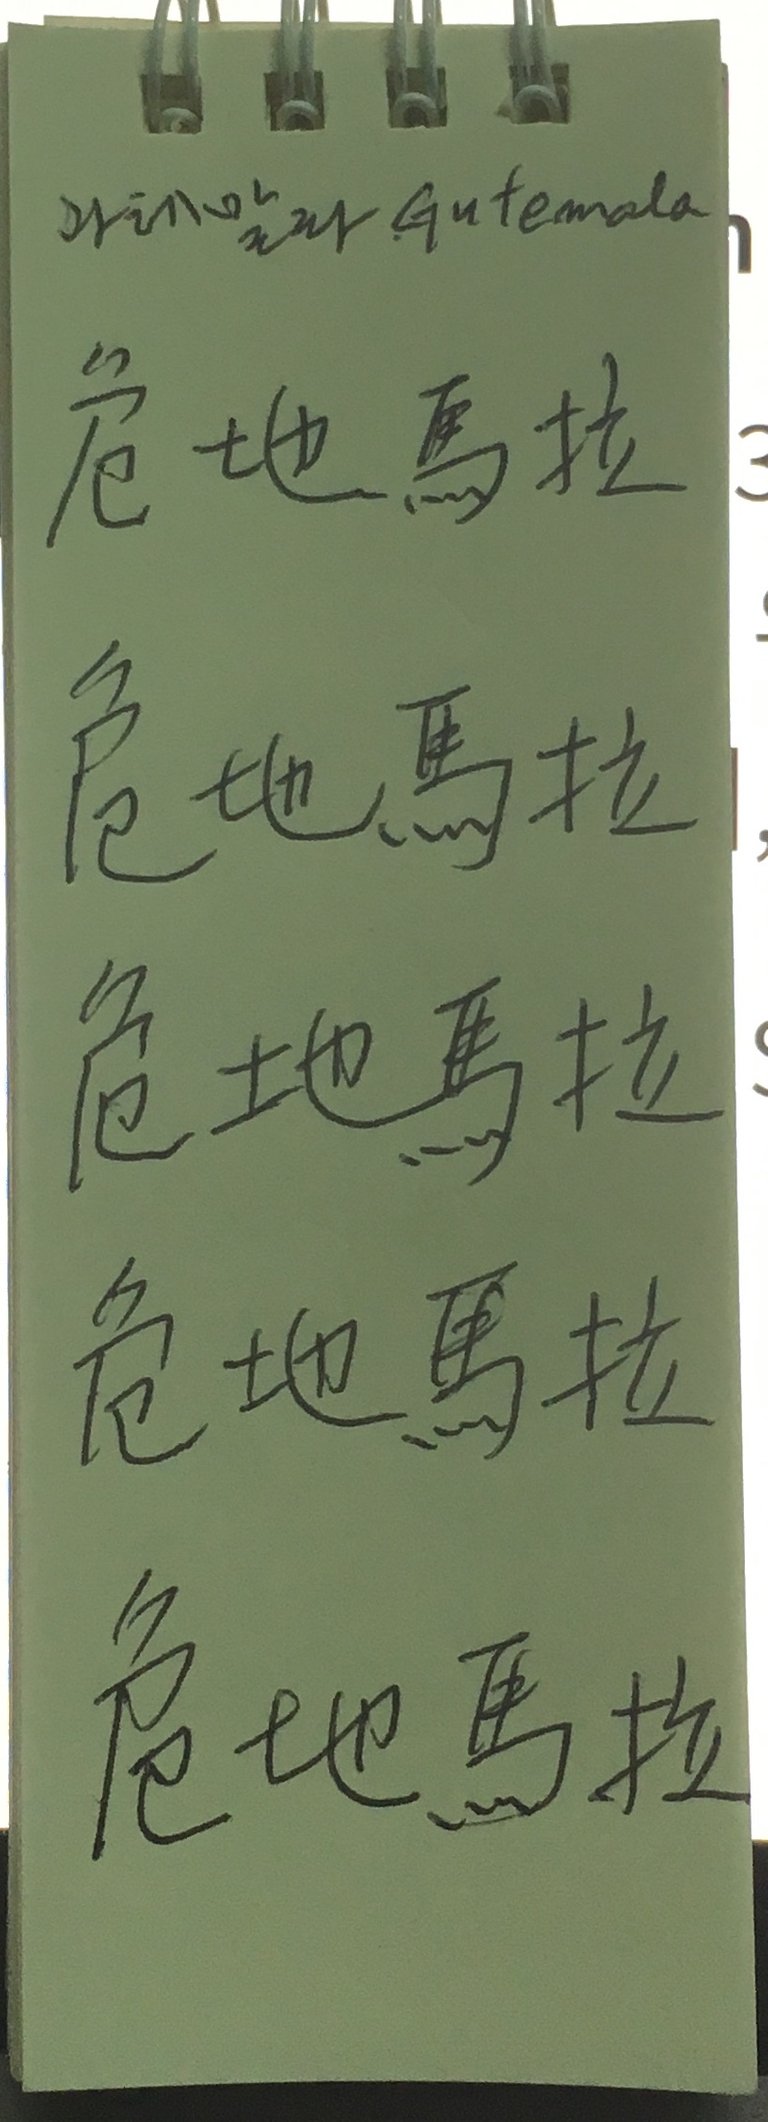 과테말라 Gutemala
危地馬拉
危地馬拉
危地馬拉
危地馬拉
危地馬拉